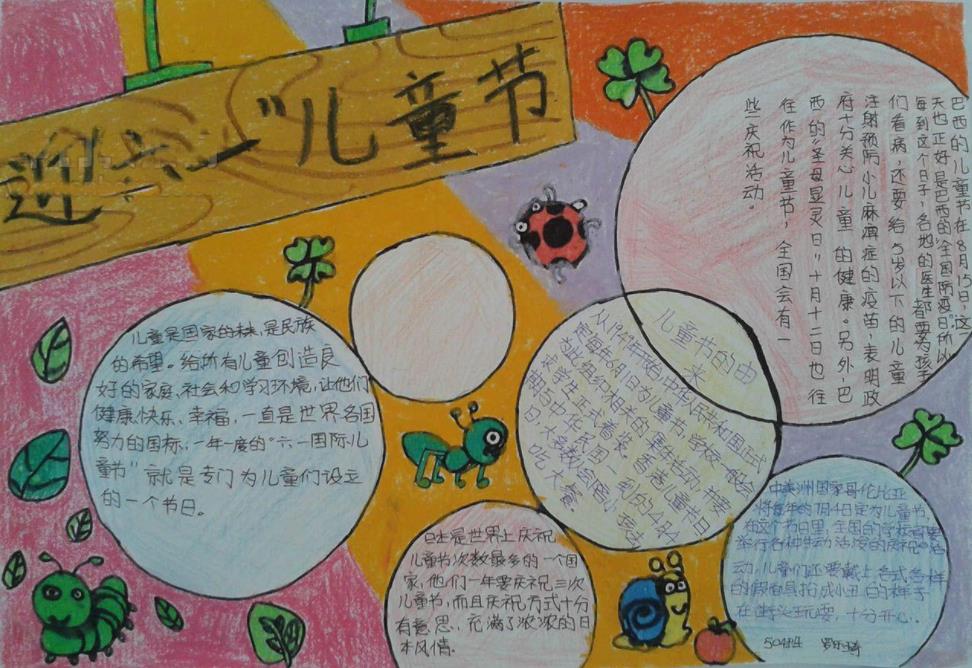 迎六一"儿童节
巴西的儿童节在8月15日,这
天也正好是巴西的"全国防疫日"所以
每到这个日子,各地的医生都要为孩子
们看病,还要给5岁以下的儿童
注射预防小儿麻痹症的疫苗,表明政
府十分关心儿童的健康。另外,巴
西的"圣母显灵日"十月十二日也往
往作为儿童节,全国会有一
些庆祝活动。
儿童是国家的未来,是民族
的希望。给所有儿童创造良
好的家庭、社会和学习环境,让他们
健康快乐、幸福,一直是世界各国
努力的国标,一年一度的"六一国际儿
童节"就是专门为儿童们设立
的一个节日。
儿童节的由
来
定每年6月1日为儿童节,学校一般会
为此组织相关的集体活动,并要
求学生正式着装,香港儿童节日
期与中华民国一致的4月4
日,大多数会唱
吃大餐
日本是世界上庆祝
儿童节次数最多的一个国
家,他们一年要庆祝三次
儿童节,而且庆祝方式十分
有意思,充满了浓浓的日
本风情。
中美洲国家哥伦比亚
将每年的7月4日定为儿童节
在这个节日里,全国的学校都要
举行各种生动活泼的庆祝活
动,儿童们还要戴上各式各样
的假面具扮成小丑的样子
在街头玩耍,十分开心.